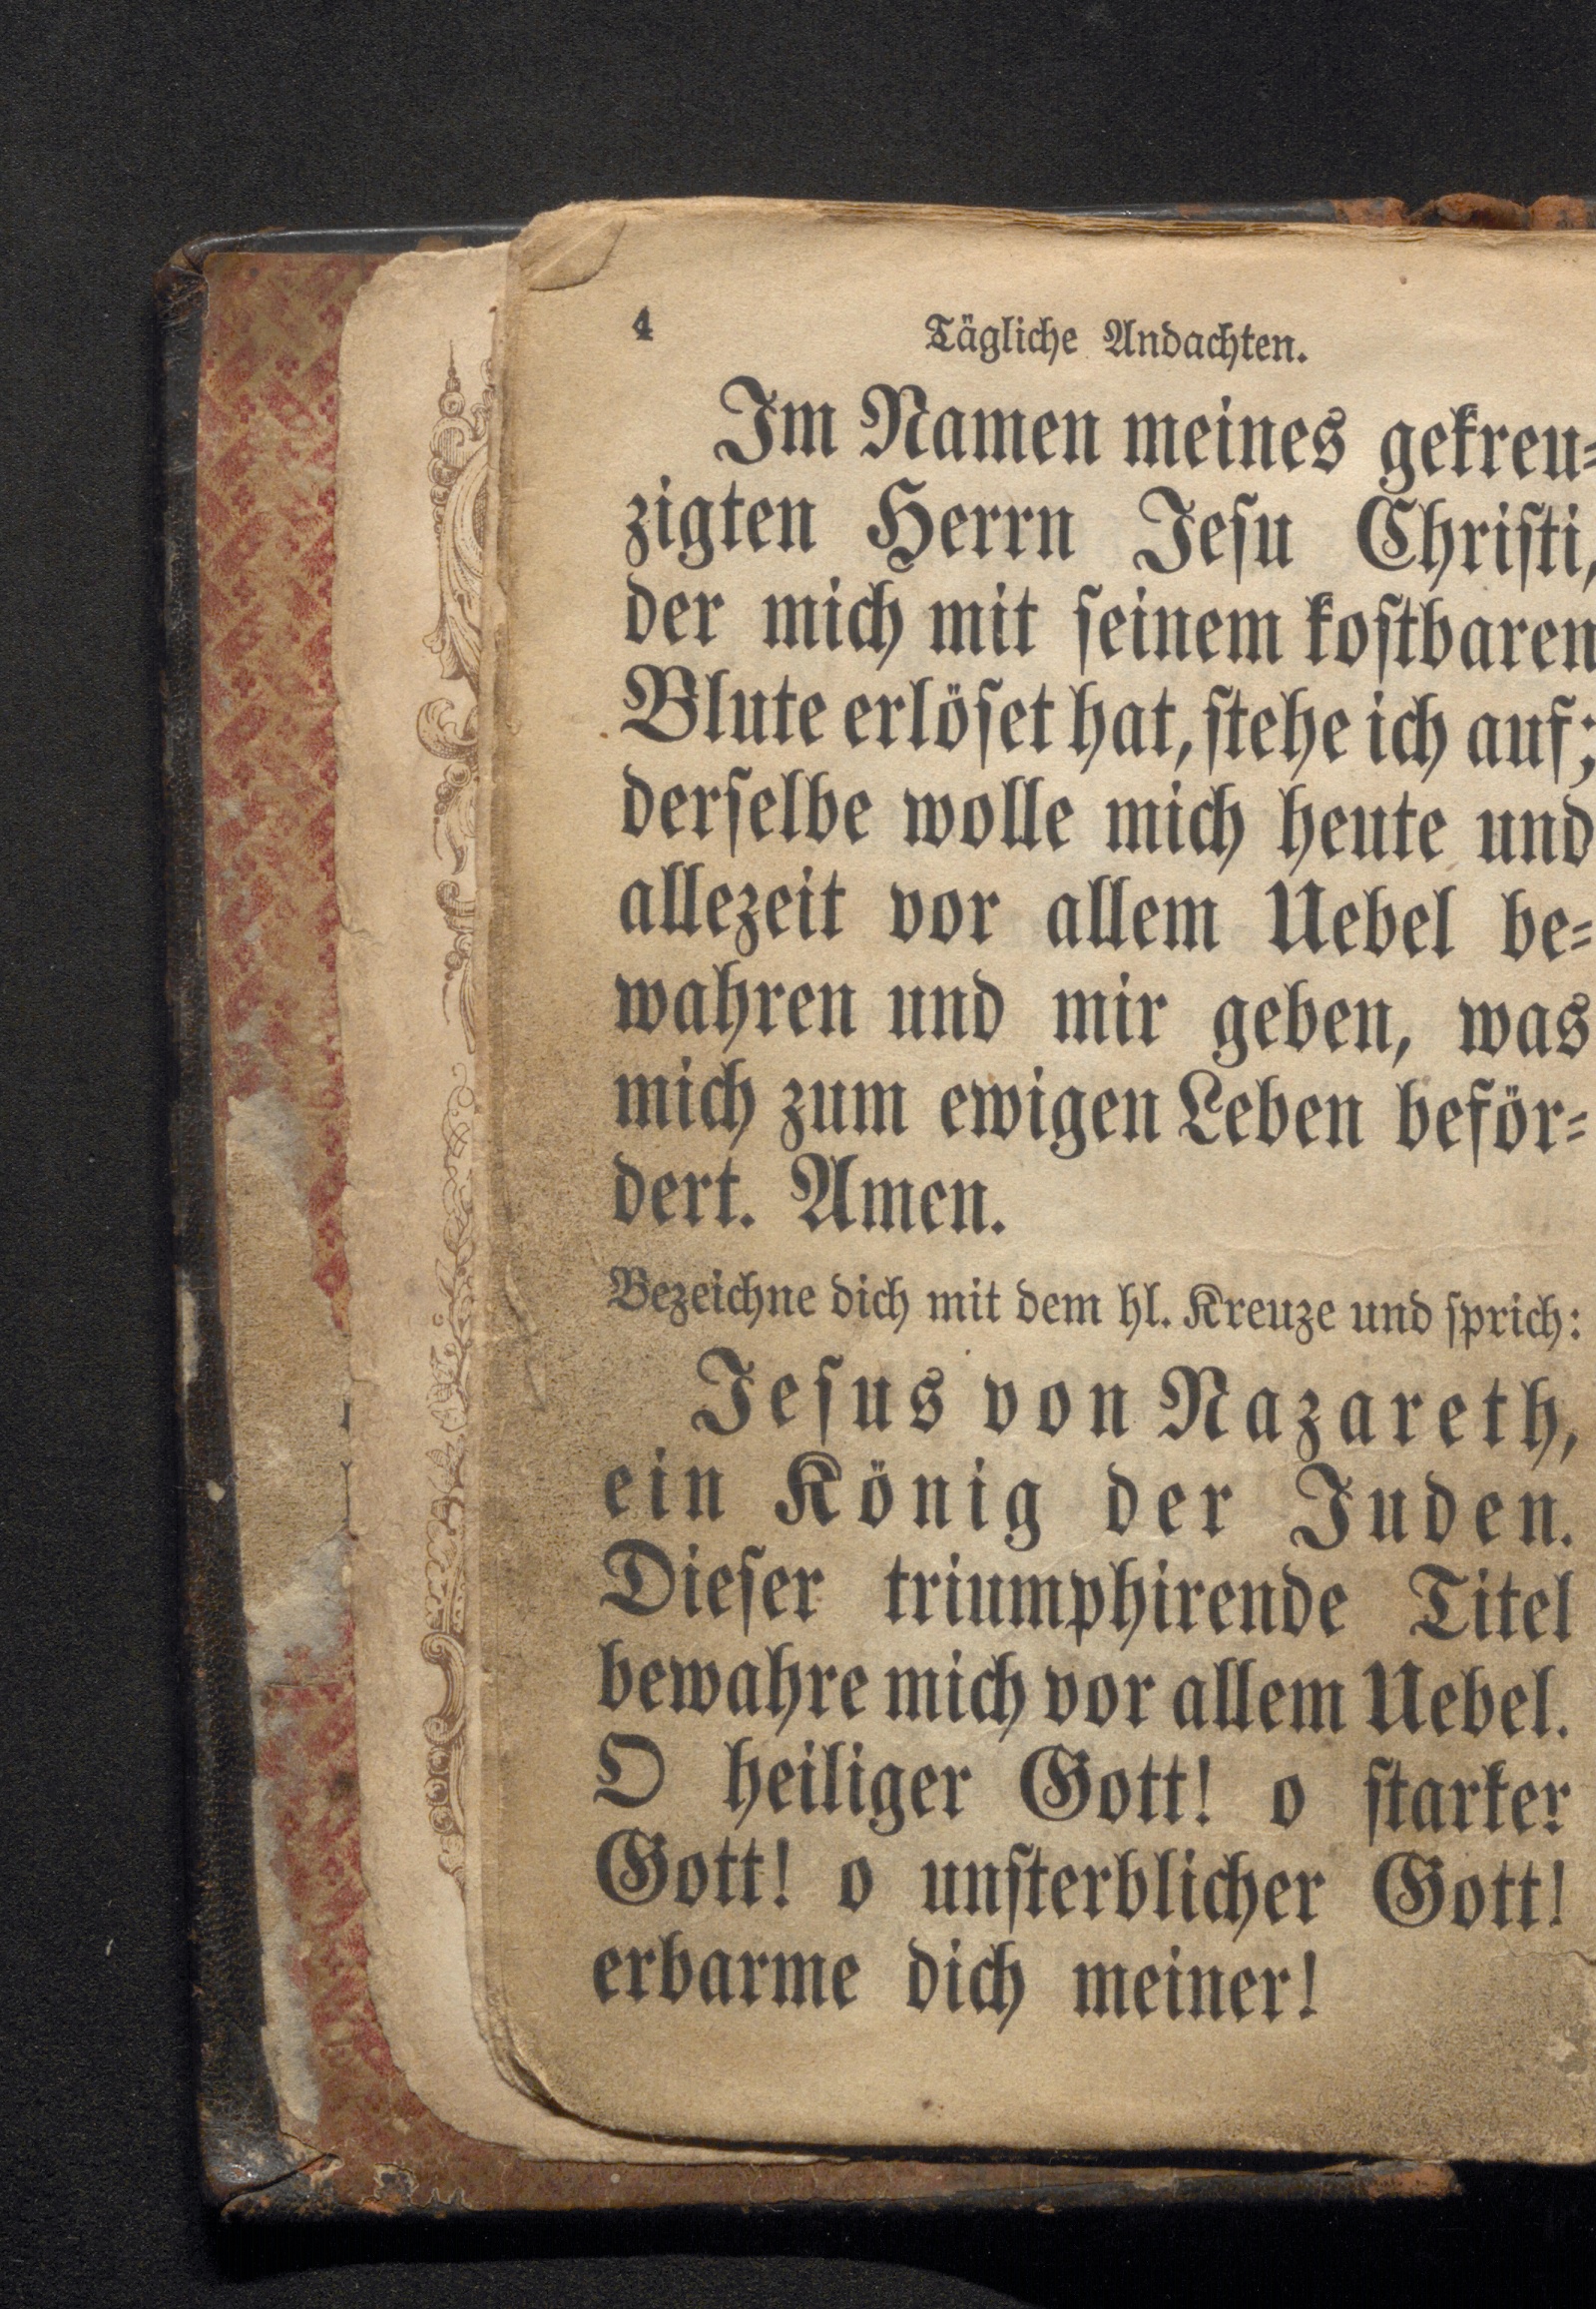 4 Tägliche Andachten.
Im Namen meines gekreu⸗
zigten Herrn Jeſu Chriſti,
der mich mit ſeinem koſtbaren
Blute erlöſet hat, ſtehe ich auf;
derſelbe wolle mich heute und
allezeit vor allem Uebel be⸗
wahren und mir geben, was
mich zum ewigen Leben beför⸗
dert. Amen.
Bezeichne dich mit dem hl. Kreuze und ſprich:
Jeſus von Nazareth,
ein König der Juden.
Dieſer triumphirende Titel
bewahre mich vor allem Uebel.
O heiliger Gott! o ſtarker
Gott! o unſterblicher Gott!
erbarme dich meiner!